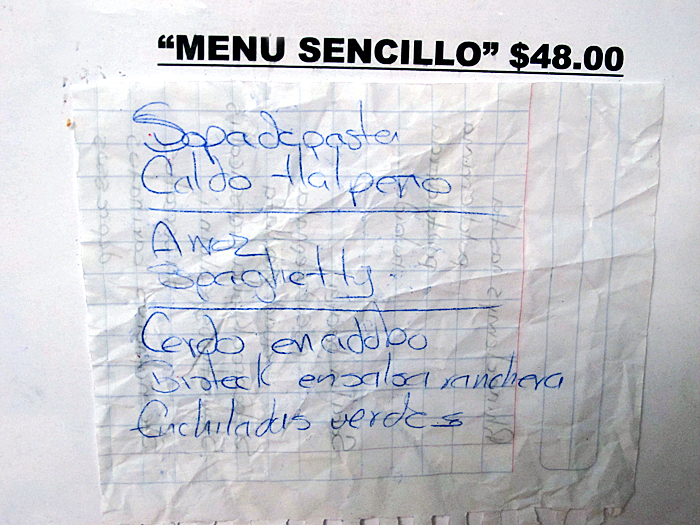 “MENU SENCILLO” $48.00
Sopa de pasta
Caldo tlalpeño
Arroz
Spaghetty
Cerdo en adobo
Bisteck en salsa ranchera
Enchiladas verdes